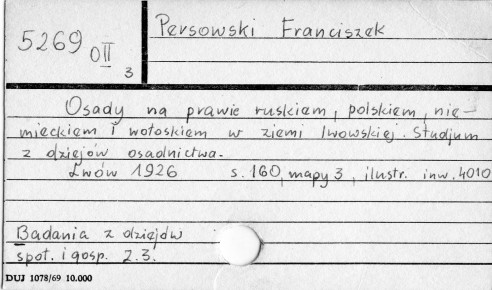 5269 OII
3
Persowski Franciszek
Osady na prawie ruskiem, polskiem, nie-
mieckiem i wołoskiem w ziemi lwowskiej. Studjum
z dziejów osadnictwa.
Lwów 1926 s. 160, mapy 3, ilustr. inw. 4010
Badania z dziejów
społ. i gosp. 2.3.
DUJ 1078/69 10.000